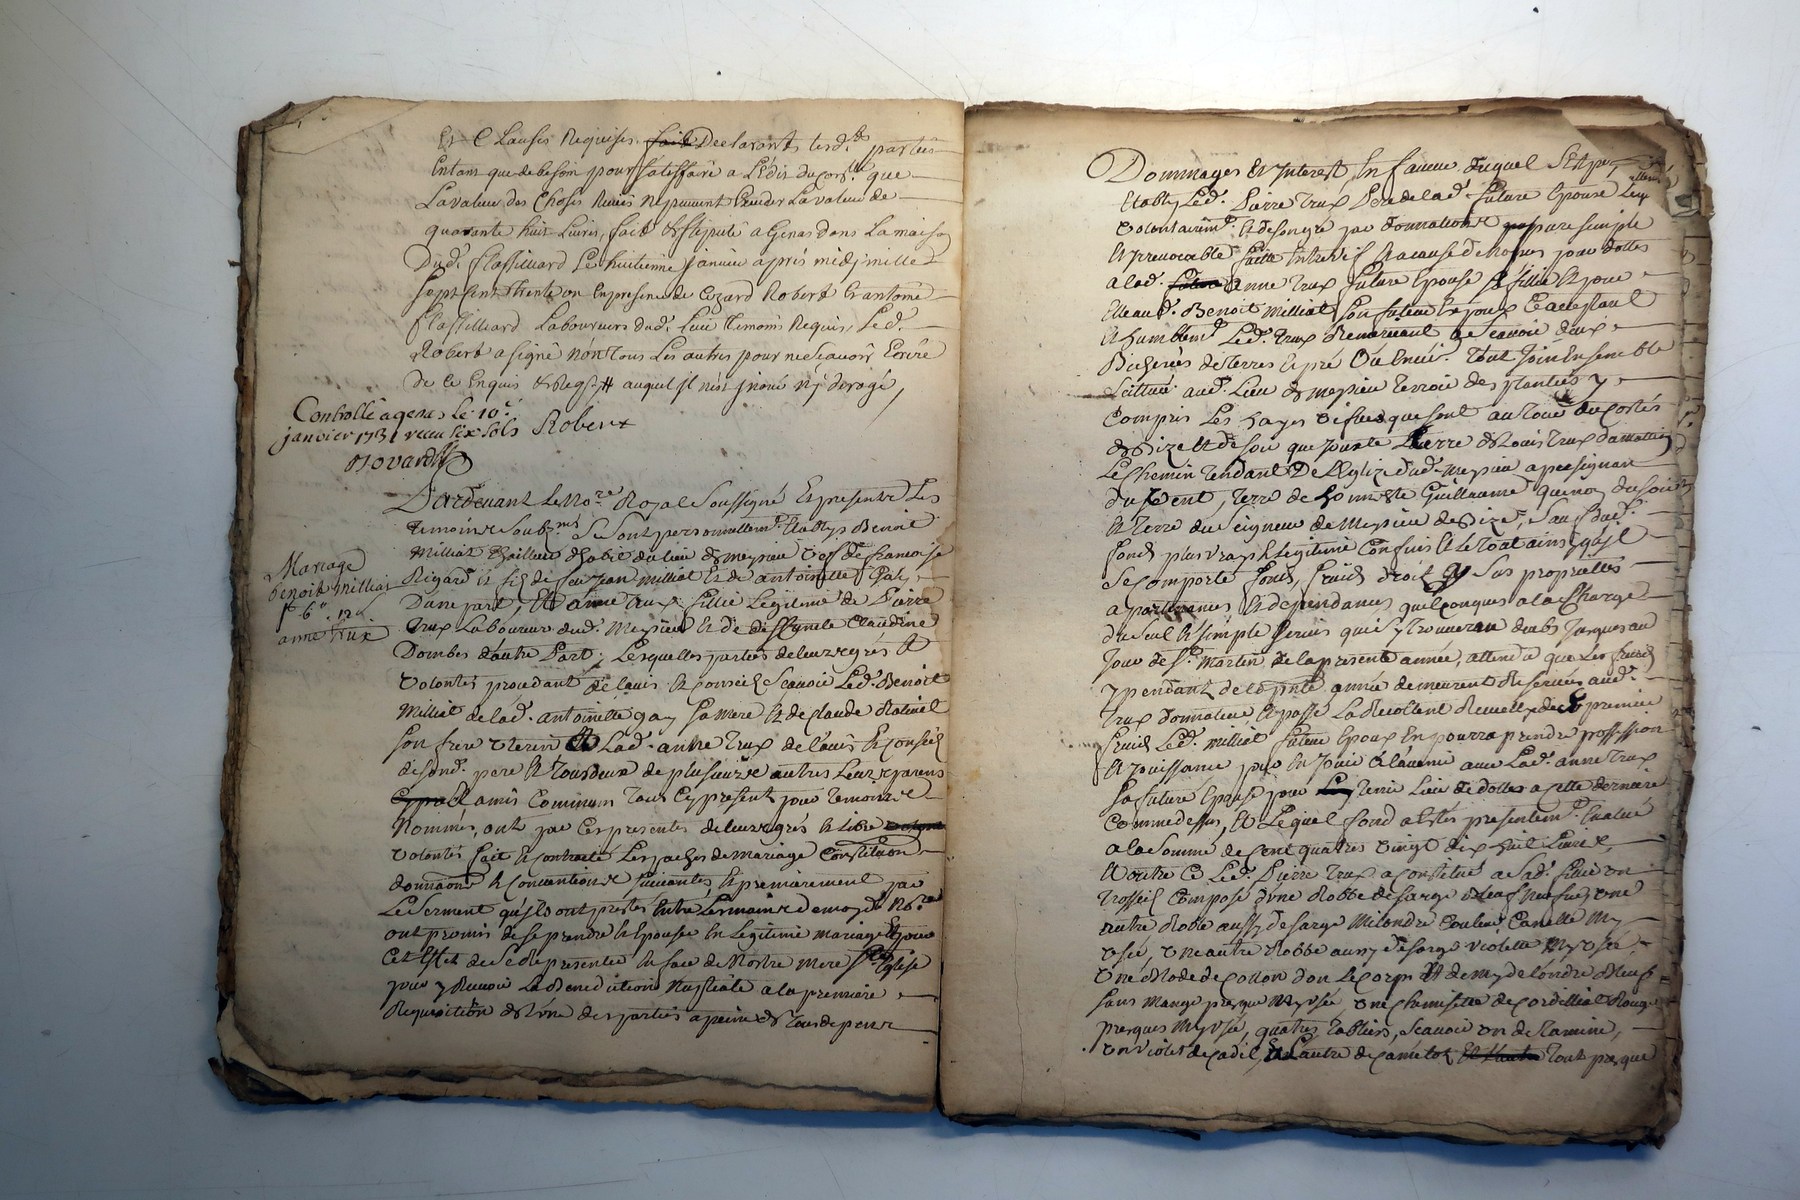 Et Clauses Requises. fait Declarants lesd.es parties
Entant que de besoin pour satisffaire a L'édit du con.lle que
La valeur des Choses Remis ne peuvent Exceder La valeur de
quarante huit Livres, fait & stipulé a Genas dans La maison
Dud. flassilliard Le huitieme janvier apres midj mille
sept Cent trente un En presence de Cezard Robert & antoine
flassilliard Laboureurs dud. Lieu temoins Requis, Led.
Robert a signé non tous Les autres pour ne sçavoir Ecrire
De Ce Enquis & Req. auquel jl n'est jnové nÿ derogé,
Controllé a genas Le 10.e
janvier 1731 receu six sols Robert
Pardevant Le No.re Royal soussigné Et presents Les
temoins soub.nes se sont personnellem.t Etablys Benoit
Milliat tailleur d'habit du lieu de meysieu veuf de francoise
Rigard fils de feu Jean milliat Et de antoinette Gay
D'une part, Et anne trux fillie Legitime de Pierre
trux Laboureur dud. Meysieu Et de deffunte Claudine
Dombes d'autre Part, Lesquelles parties de leurs grés Et
volontes procedant de l'avis Et Conseil sçavoir Led. Benoit
Milliat de lad. antoinette gay sa mere Et de Claude
son frere uterin Et Lad. anne trux de l'avis Et Conseil
desond. pere Et tous deux de plusieurs autres Leurs parens
Et amis Commun tous Cy present pour temoins
Nommés, ont par Ces presentes de leurs grés Et libre
volontés fait Et contracté Les paches de mariage Constitution
donnaons Et Conventions suivantes, Et premierement par
Le Serment qu'jls ont prestés Entre Les mains de moyd. No.re
ont promis de se prendre Et Epouser En Legitime mariage Et pour
Cet Effet de se Representer En face de Nostre mere s.te Eglise
pour y Recevoir La Benediction Nuptiale a la premiere
Requisition de L'une des parties a peine de tous depens
Mariage
benoit milliat
anne trux
Dommages Et Interest, En faveur duquel
Etably Led. Pierre trux Pere de lad. future Epouse Leq
volontairem.t Et de son gré par donnation pure simple
Et jrrevocable faitte Entre vif Et a cause de Noces pour dottes
a lad. anne trux future Epouse sa fillie Et pour
Elle aud. Benoit Milliat son futeur Epoux Et acceptant
Et humblem.t Led. trux Remerciant Sçavoir deux
Bicherées de terres Et pré Ou Envir. tout Join Ensemble
scitué aud. Lieu de meysieu terroir des planties y
Compris Les hayes vifves que sont au tour du Costés
de Bize Et de soir que Jouxte Pierre & Louis trux
Le Chemin tendant De L'Eglize dud. Meysieu a persignan
du vent, terre de honneste Guillaume du soir
Et terre du Seigneur de Meysieu de Bize, sauf dud.
fonds plus vrays & legitime Confins Et le tout ainsy qu'jl
se Comporte fonds, fruids droit Ses proprietés
apartenances Et dependances quelconques a la Charge
du seul Et simple servis qui s'y trouveran deubs Jusques au
Jour de s.t Martin de la presente année, attendu que Les fruids
y pendant de la pnte année demeurent Reservés aud.
trux donnateur, Et passé La Recoltent Recueillie des premier
fruids Led. Milliat futeur Epoux En pourra prendre possession
Et Jouissance pour En Jouir a l'avenir avec Lad. anne trux
sa future Epouse pour tenir Lieu de dottes a Cette derniere
Comme dessus, Et Lequel fond a Estés presentem.t Evalué
a la somme de Cent quatres vingt dix huit Livres,
Et outre Ce Led. Pierre trux a Constitué a Sad. fillie un
trossel Composé d'une Robbe de sarge neufve, une
autre Robbe aussy de sarge Couleur Canelle My
usée, une autre Robbe aussy de sarge violette My usée
une Robe de Cotton don Le Corps Et demy de londre bleuf
sans mange presque My usée une Chemisette de Cordilliat Rouge
presques My usée, quatres tabliers, Sçavoir un de Ramine,
un violet de Cadil, Et L'autre de Camelot tout presque